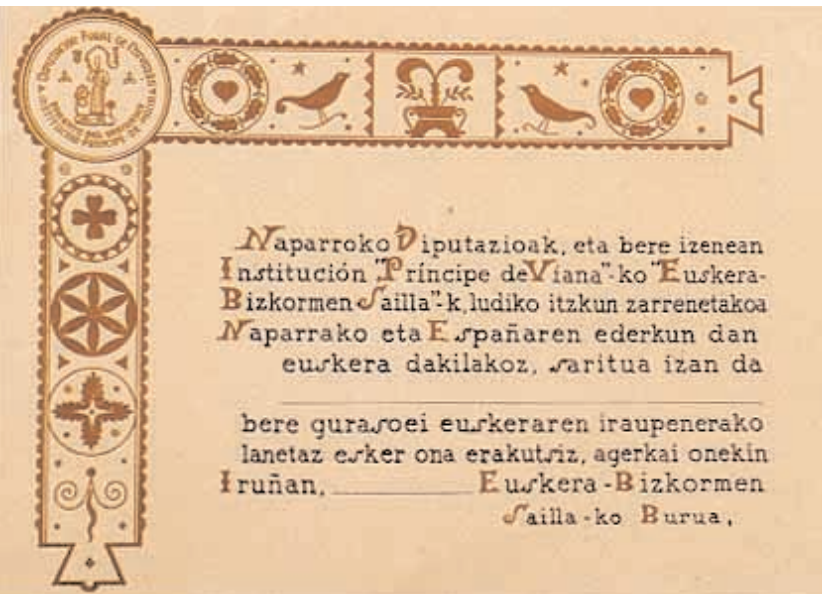 Naparroko Diputazioak, eta bere izenean
Institución "Príncipe de Viana"-ko "Euskera-
Bizkormen Sailla"-k, ludiko itzkun zarrenetakoa
Naparrako eta Españaren ederkun dan
euskera dakilakoz, saritua izan da
bere gurasoei euskeraren iraupenerako
lanetaz esker ona erakutsiz, agerkai onekin
Iruñan, Euskera-Bizkormen
Sailla-ko Burua,